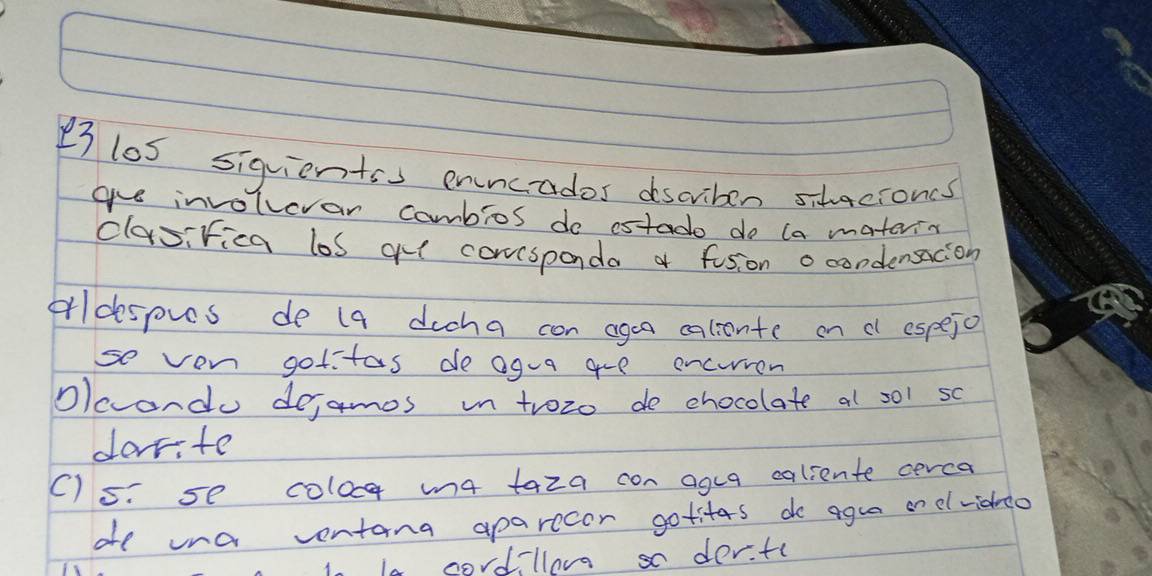 E3 los siguientes enunciados describen situaciones
que involucran cambios de estado de la materia
clasifica los que corresponda a fusion o condensacion
a) despues de la ducha con agua caliente en el espejo
se ven gotitas de agua que encurren
b) cuando dejamos un trozo de chocolate al sol se
darrite
c) si se coloca una taza con agua caliente cerca
de una ventana aparecen gotitas de agua en el vidreo
la cordillera se derite